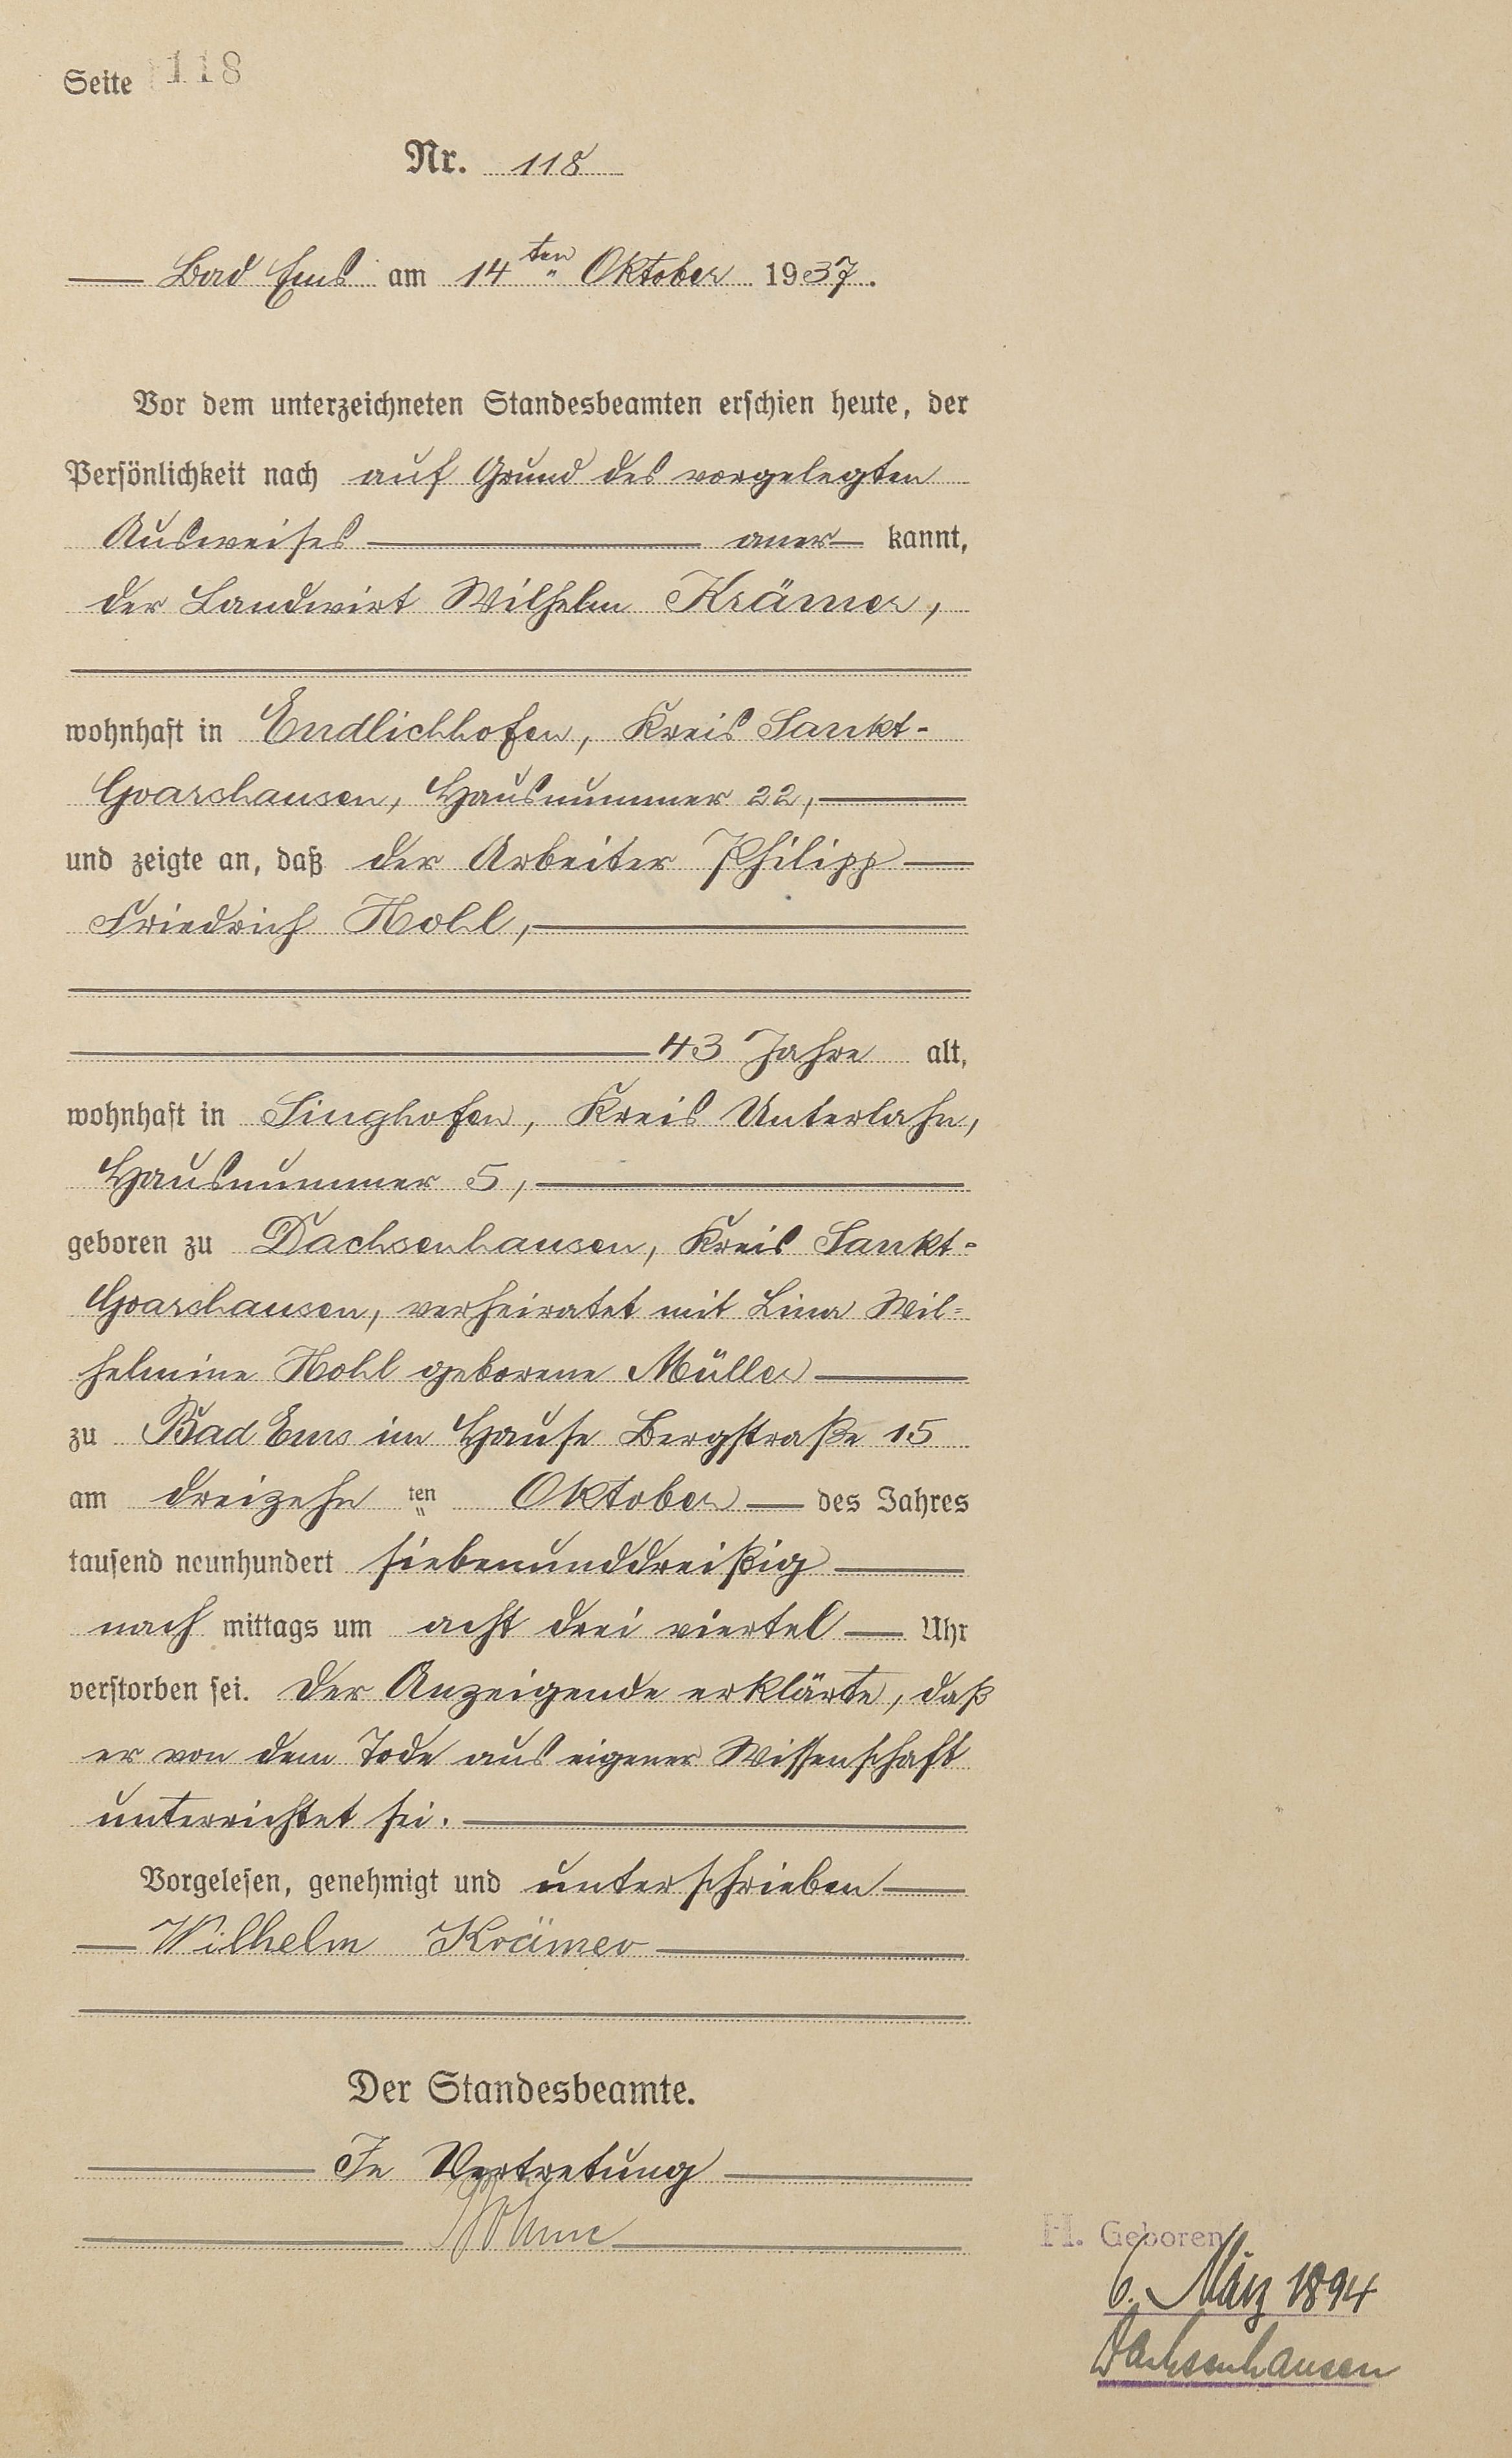 Seite 118
Nr. 118
Bad Ems am 14ten Oktober 1937.
Vor dem unterzeichneten Standesbeamten erschien heute, der
Persönlichkeit nach auf Grund des vorgelegten
Ausweises aner kannt,
der Landwirt Wilhelm Krämer,
wohnhaft in Endlichhofen, Kreis Sankt-
Goarshausen, Hausnummer 22,
und zeigte an, daß der Arbeiter Philipp
Friedrich Nohl,
43 Jahre alt,
wohnhaft in Singhofen, Kreis Unterlahn,
Hausnummer 5,
geboren zu Dachsenhausen, Kreis Sankt-
Goarshausen, verheiratet mit Lina Wil=
helmine Nohl geborene Müller
zu Bad Ems im Hause Bergstraße 15
am dreizehn ten Oktober des Jahres
tausend neunhundert siebenunddreißig
nach mittags um acht drei viertel Uhr
verstorben sei. Der Anzeigende erklärte, daß
er von dem Tode aus eigener Wissenschaft
unterrichtet sei.
Vorgelesen, genehmigt und unterschrieben
Wilhelm Krämer
Der Standesbeamte.
In Vertretung
H. Geboren
6. März 1894
Dachsenhausen